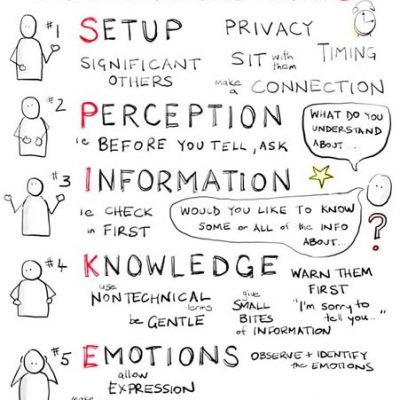 #1 SETUP
PRIVACY
TIMING
SIGNIFICANT
OTHERS
SIT with
them
make
a CONNECTION
#2 PERCEPTION
ie BEFORE YOU TELL, ASK
WHAT DO YOU
UNDERSTAND
ABOUT...
#3 INFORMATION
ie CHECK
in FIRST
WOULD YOU LIKE TO KNOW
SOME or ALL of the INFO
ABOUT...
?
#4 KNOWLEDGE
use
NONTECHNICAL
terms
be GENTLE
give
SMALL
BITES
of INFORMATION
WARN THEM
FIRST
"I'm sorry to
tell you.."
#5 EMOTIONS
allow
EXPRESSION
OBSERVE + IDENTIFY
the EMOTIONS
make